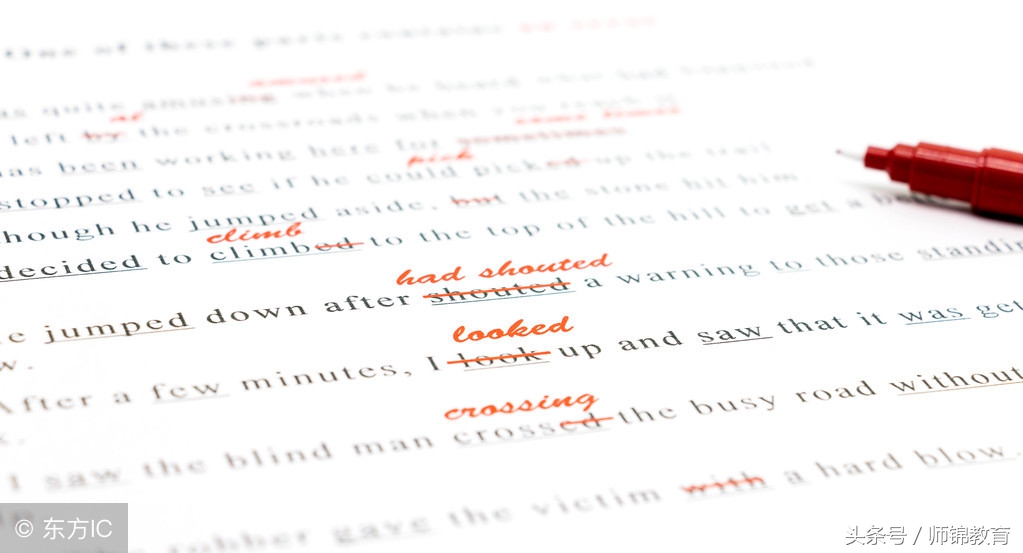 One of these parts contains
amused
as quite amusing when he heard what had happened
at
left by the crossroads when you reach it
some times
has been working here for sometimes
pick
stopped to see if he could picked up the trail
though he jumped aside, but the stone hit him
climb
decided to climbed to the top of the hill to get a
had shouted
e jumped down after shouted a warning to those standin
w.
looked
After a few minutes, I look up and saw that it was get
crossing
I saw the blind man crossed the busy road without
robber gave the victim with a hard blow.
© 东方IC
头条号 / 师锦教育